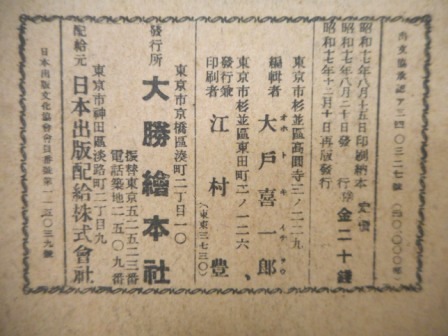 出文協承認ア三四〇三二七號 (四〇、〇〇〇部)
昭和十七年八月十五日印刷納本
昭和十七年八月二十日發行
昭和十七年十二月十日再版發行
定價 金二十錢
東京市杉並區高圓寺三ノ二二九
編輯者 大戸喜一郎
オホトキイチラウ
東京市杉並區東田町二ノ一二六
發行兼印刷者 江村豊
(東東三七三〇)
東京市京橋區湊町二丁目一〇
發行所 大勝繪本社
振替東京五二五二三番
電話築地二五〇九番
東京市神田區淡路町二丁目九
配給元 日本出版配給株式會社
日本出版文化協會會員番號第一二五〇三九號